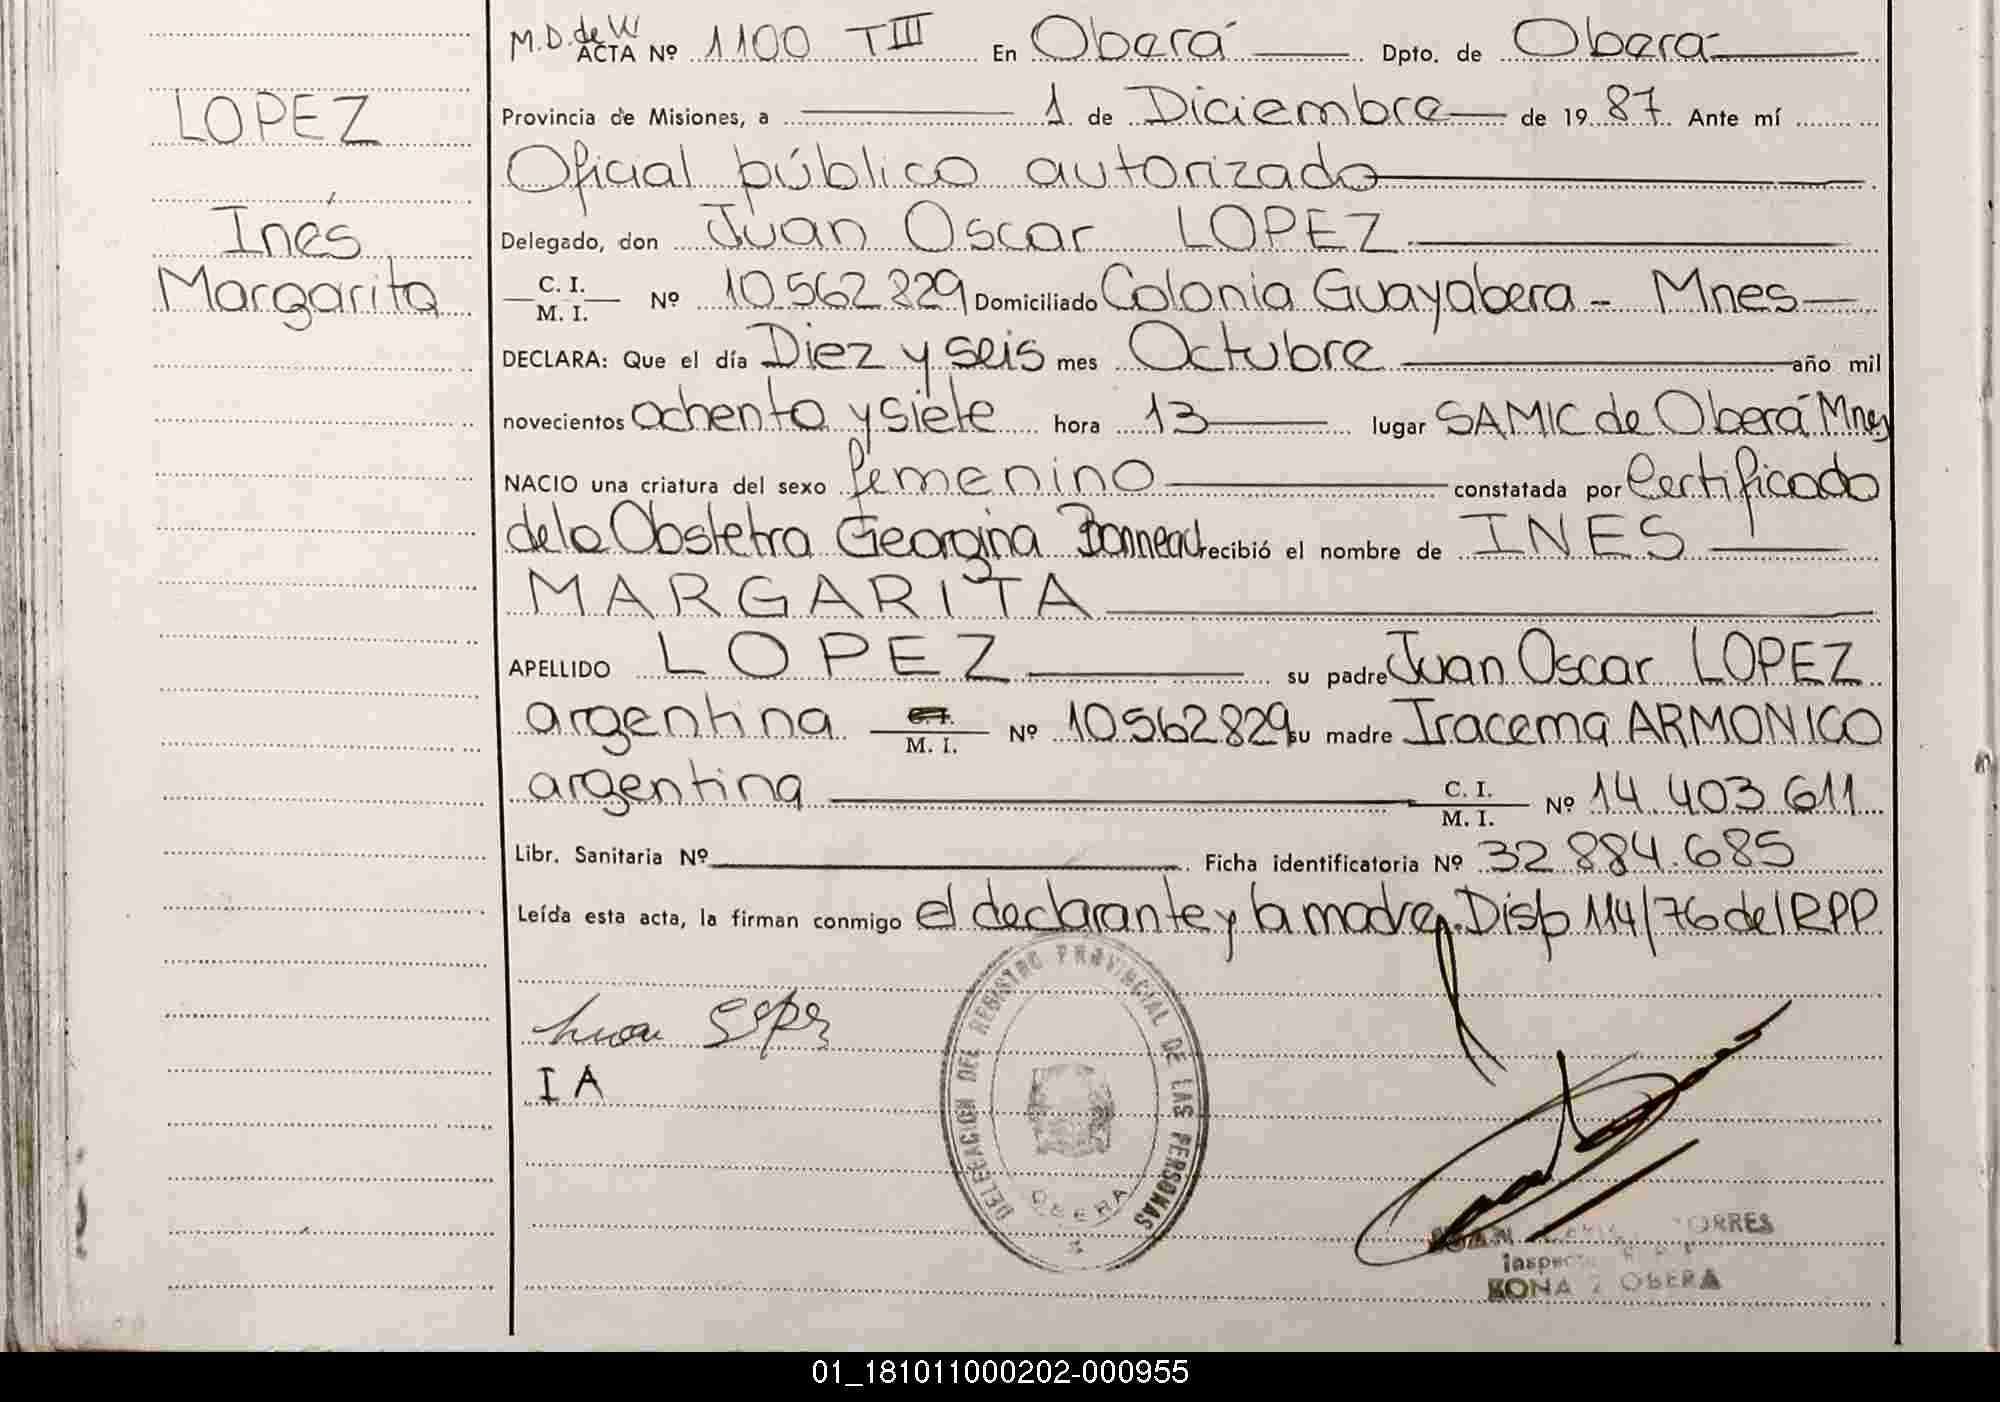 M.D. de W
ACTA Nº 1100 TIII En Oberá Dpto. de Oberá
LOPEZ
Provincia de Misiones, a 1 de Diciembre de 1987 Ante mí
Oficial público autorizado
Inés
Delegado, don Juan Oscar LOPEZ
Margarita
C. I. M. I. Nº 10.562.829 Domiciliado Colonia Guayabera - Mnes
DECLARA: Que el día Diez y seis mes Octubre año mil
novecientos ochenta y siete hora 13 lugar SAMIC de Oberá Mnes
NACIO una criatura del sexo femenino constatada por Certificado
de la Obstetra Georgina Bonneau recibió el nombre de INES
MARGARITA
APELLIDO LOPEZ su padre Juan Oscar LOPEZ
argentina C. I. M. I. Nº 10.562.829 su madre Iracema ARMONICO
argentina C. I. M. I. Nº 14.403.611
Libr. Sanitaria Nº Ficha identificatoria Nº 32.884.685
Leída esta acta, la firman conmigo el declarante y la madre. Disp 114/76 del RPP
DELEGACION DEL REGISTRO PROVINCIAL DE LAS PERSONAS
OBERA
I A
JUAN TORRES
ZONA 2 OBERA
01_181011000202-000955